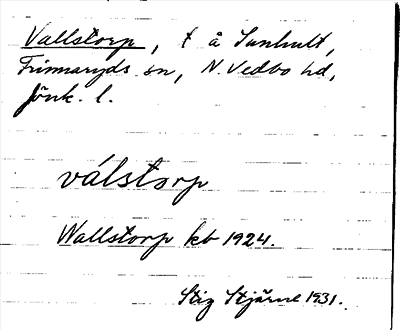 Vallstorp, t å Sunhult,
Frinnaryds sn, N. Vedbo hd,
Jönk. l.
válstorp
Wallstorp kb 1924.
Stig Stjärne 1931.